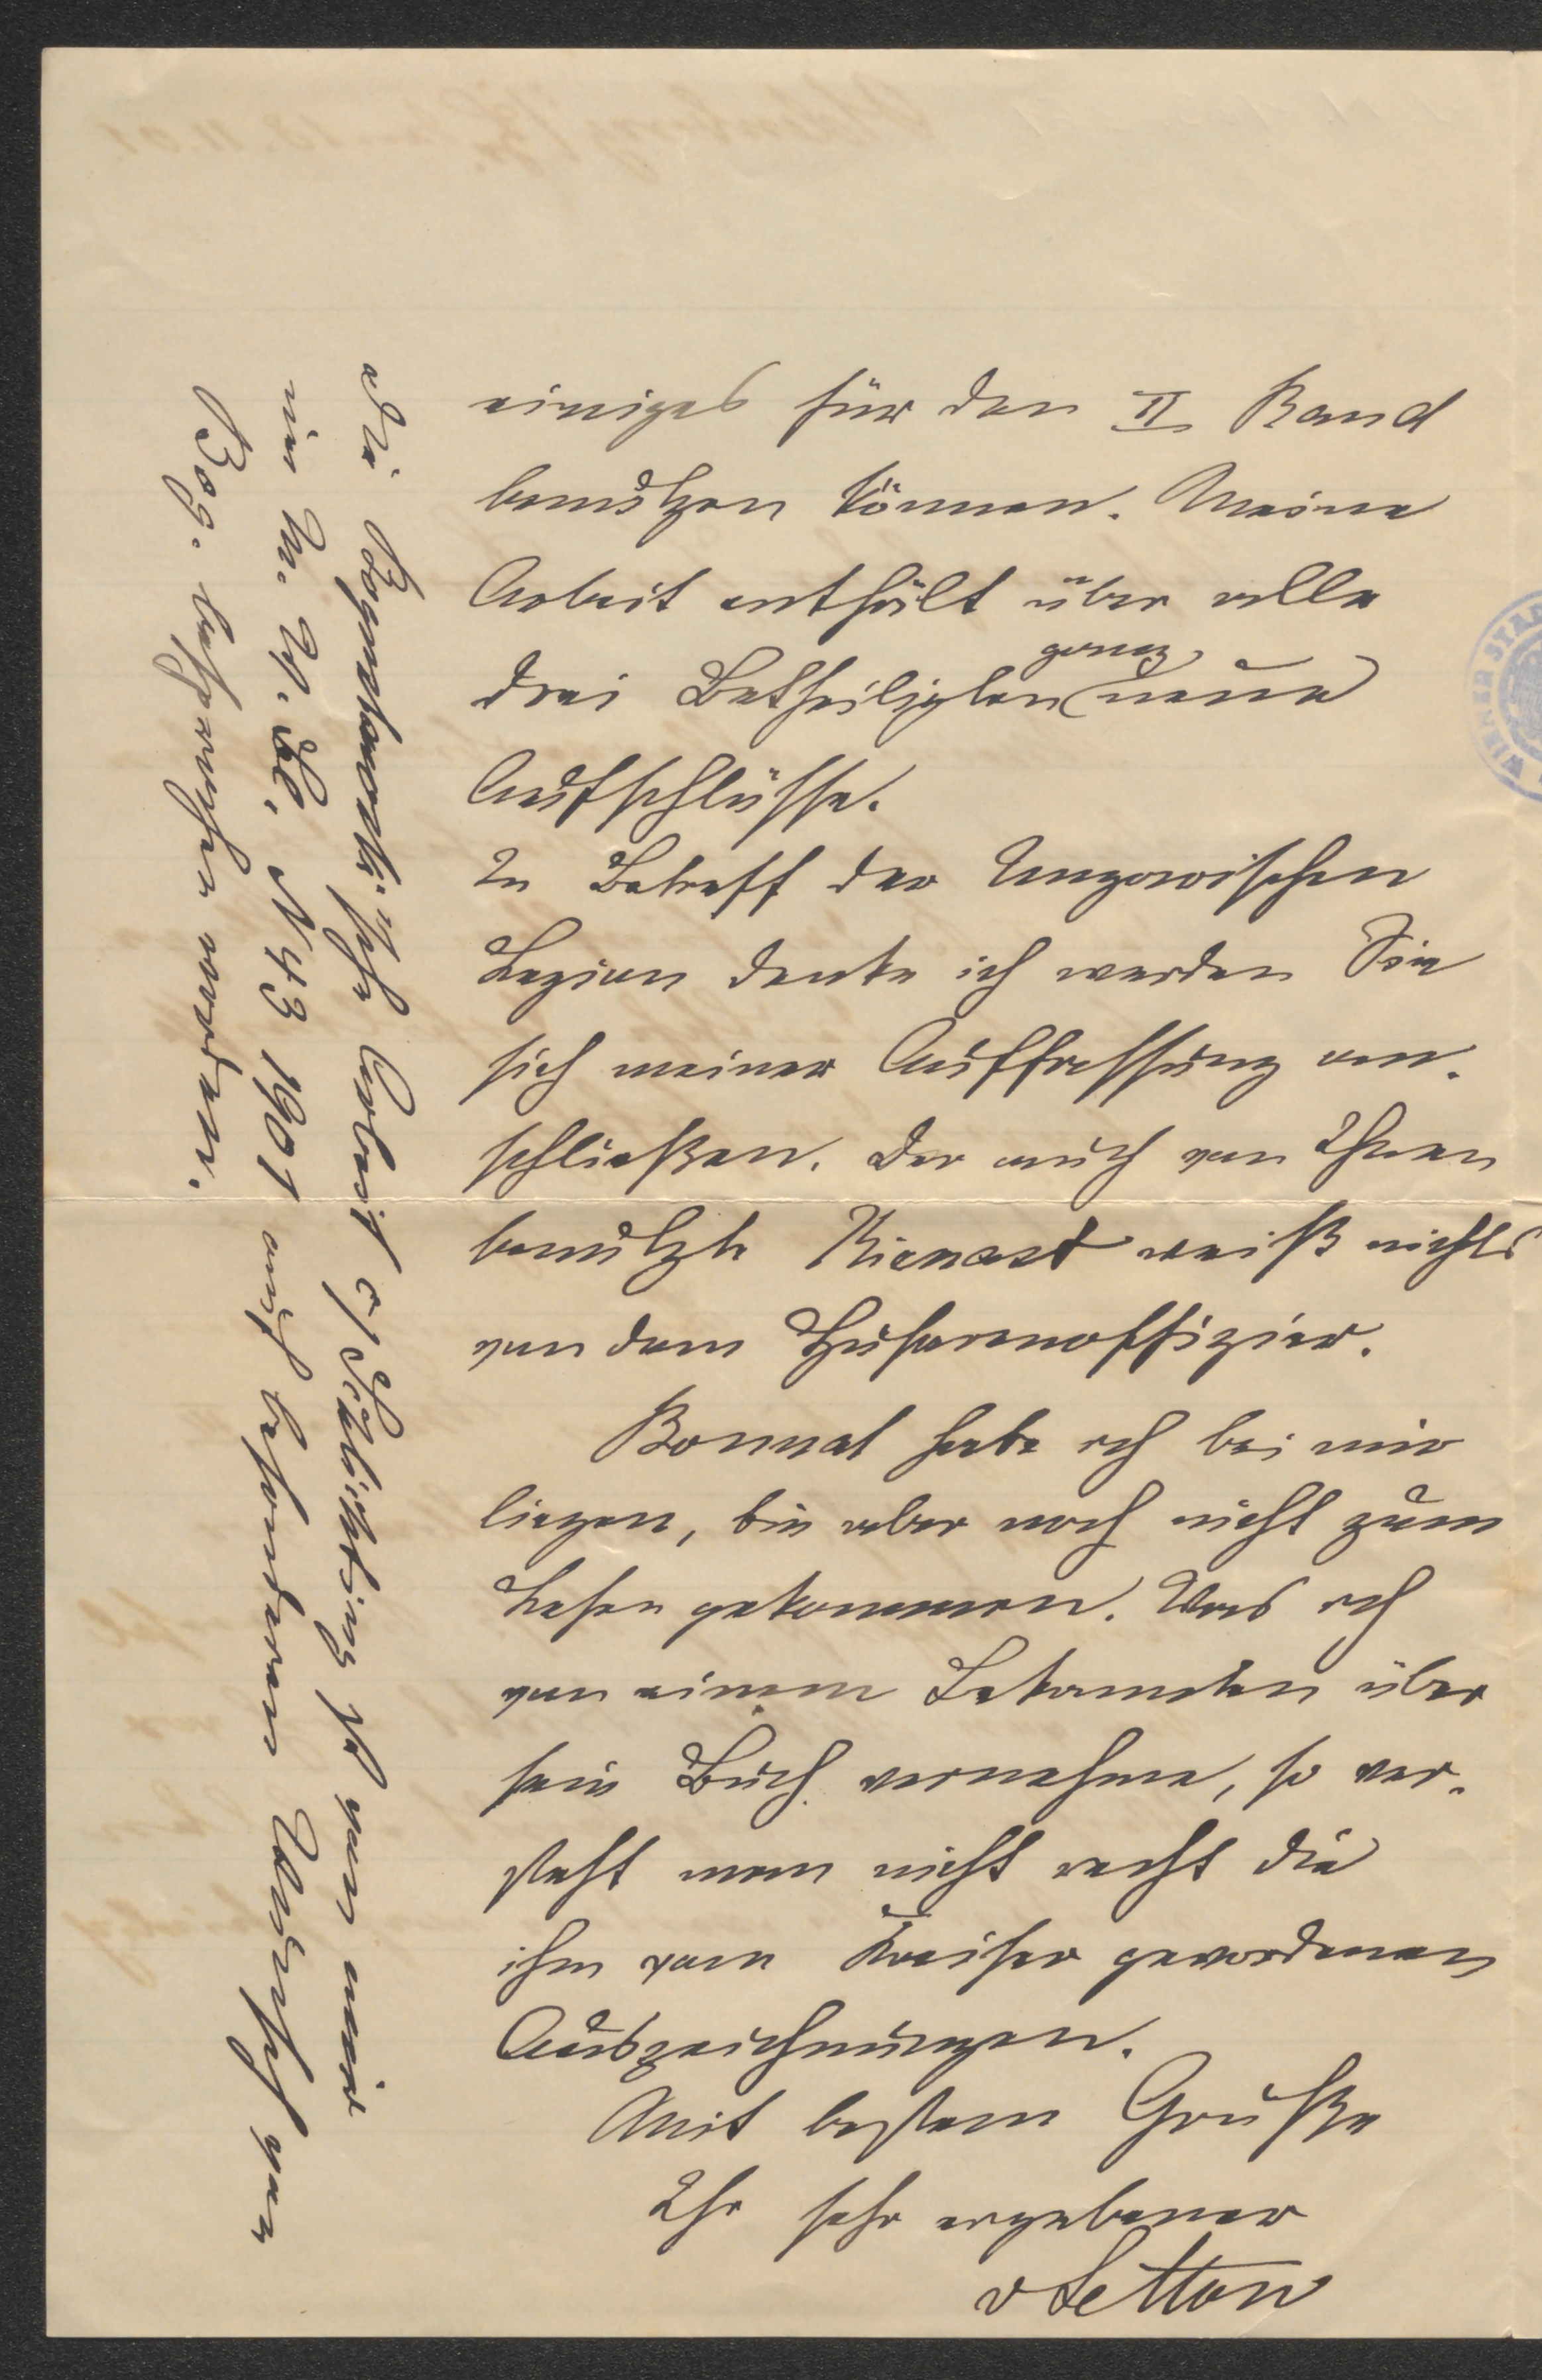 einiges für den II Band
benützen können. Meine
Arbeit enthält über alle
drei Betheiligten ganz neue
Aufschlüsse.
In Betreff der Ungarischen
Legion denke ich werden Sie
sich meiner Auffassung an-
schließen. Der auch von Ihnen
benützte Kienast weiß nichts
von dem Husarenoffizier.
Bonnal habe ich bei mir
liegen, bin aber noch nicht zum
Lesen gekommen. Was ich
von einem Bekannten über
sein Buch vernehme, so ver-
steht man nicht recht die
ihm vom Kaiser gewordenen
Auszeichnungen.
Mit bestem Gruße
Ihr sehr ergebener
v Lettow
Die Arbeit ist von mir
in M. W. Bl. N 43 1901 auf besonderen Wunsch von
Bog. besprochen worden.
WIENER STA